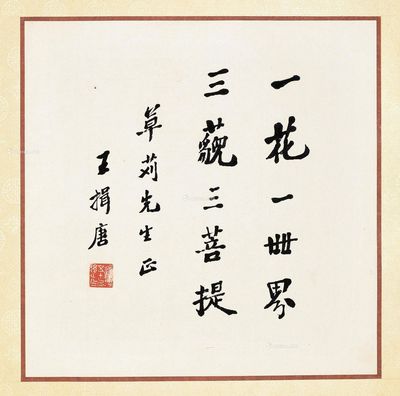 一花一世界
三藐三菩提
草苅先生正
王揖唐